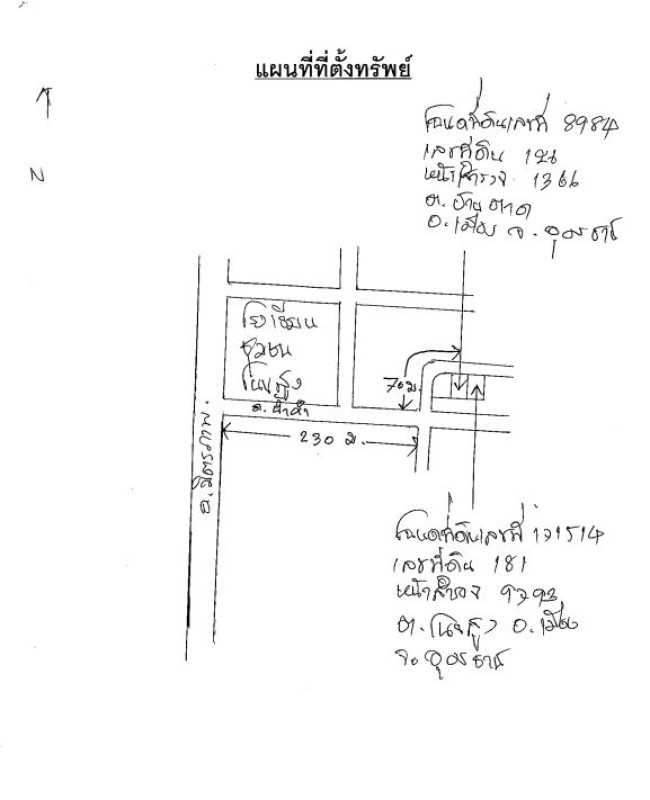 แผนที่ที่ตั้งทรัพย์
N
โฉนดที่ดินเลขที่ 8984
เลขที่ดิน 126
หน้าสำรวจ 1366
ต. บ้านตาด
อ. เมือง จ. อุดรธานี
โรงเรียน
ชุมชน
โนนสูง
70 ม.
230 ม.
ถ. มิตรภาพ.
โฉนดที่ดินเลขที่ 121514
เลขที่ดิน 181
หน้าสำรวจ
ต. โนนสูง อ. เมือง
จ. อุดรธานี